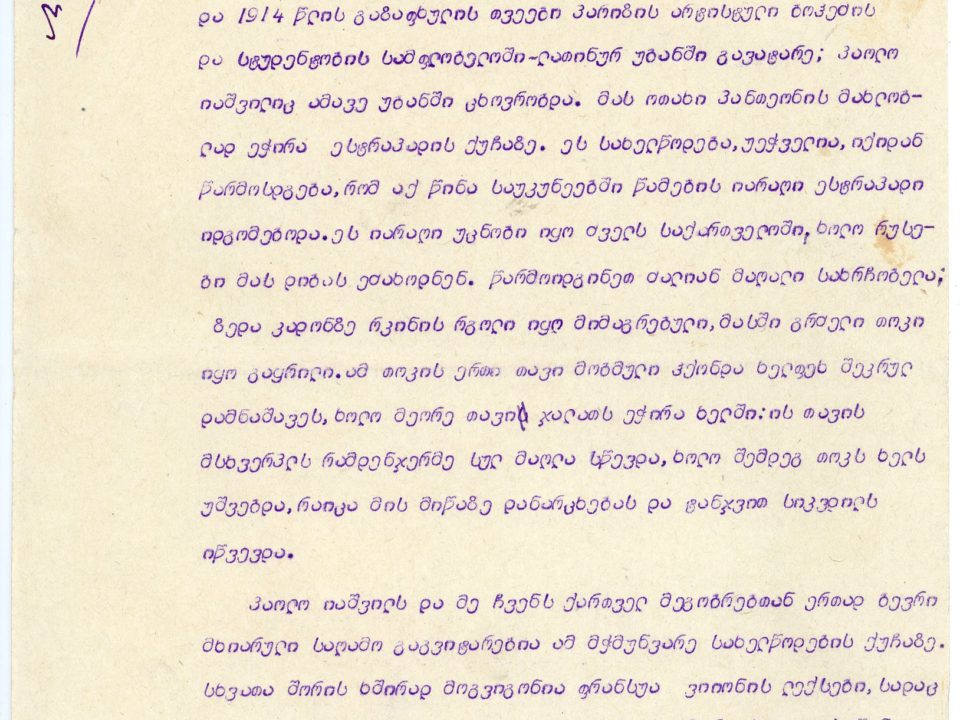 და 1914 წლის გაზაფხულის თვეები პარიზის არტისტული ბოჰემის
და სტუდენტობის სამფლობელოში-ლათინურ უბანში გავატარე; პაოლო
იაშვილიც ამავე უბანში ცხოვრობდა. მას ოთახი პანთეონის მახლობ-
ლად ეჭირა ესტრაპადის ქუჩაზე. ეს სახელწოდება,უეჭველია,იქიდან
წარმოსდგება,რომ აქ წინა საუკუნეებში წამების იარაღი ესტრაპადი
იდგომებოდა.ეს იარაღი უცნობი იყო ძველს საქართველოში, ხოლო რუსე-
ბი მას დიბას ეძახოდნენ. წარმოიდგინეთ ძალიან მაღალი სახრჩობელა;
ზედა კადონზე რკინის რგოლი იყო მიმაგრებული,მასში გრძელი თოკი
იყო გაყრილი.ამ თოკის ერთი თავი მობმული ჰქონდა ხელფეხ შეკრულ
დამნაშავეს,ხოლო მეორე თავი ჯალათს ეჭირა ხელში:ის თავის
მსხვერპლს რამდენჯერმე სულ მაღლა სწევდა,ხოლო შემდეგ თოკს ხელს
უშვებდა,რაიცა მის მიწაზე დანარცხებას და ტანჯვით სიკვდილს
იწვევდა.
პაოლო იაშვილს და მე ჩვენს ქართველ მეგობრებთან ერთად ბევრი
მხიარული საღამო გაგვიტარებია ამ მჭმუნვარე სახელწოდების ქუჩაზე.
სხვათა შორის ხშირად მოგვიგონია ფრანსუა ვიიონის ლექსები,სადაც